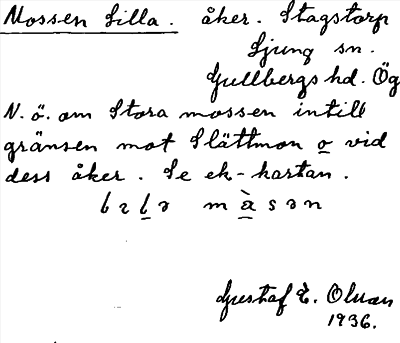 Mossen Lilla. åker. Stagstorp
Ljung sn.
Gullbergs hd. Ög
N. ö. om Stora mossen intill
gränsen mot Slättmon o vid
dess åker. Se ek-kartan.
màsən
Gustaf E. Olsson
1936.